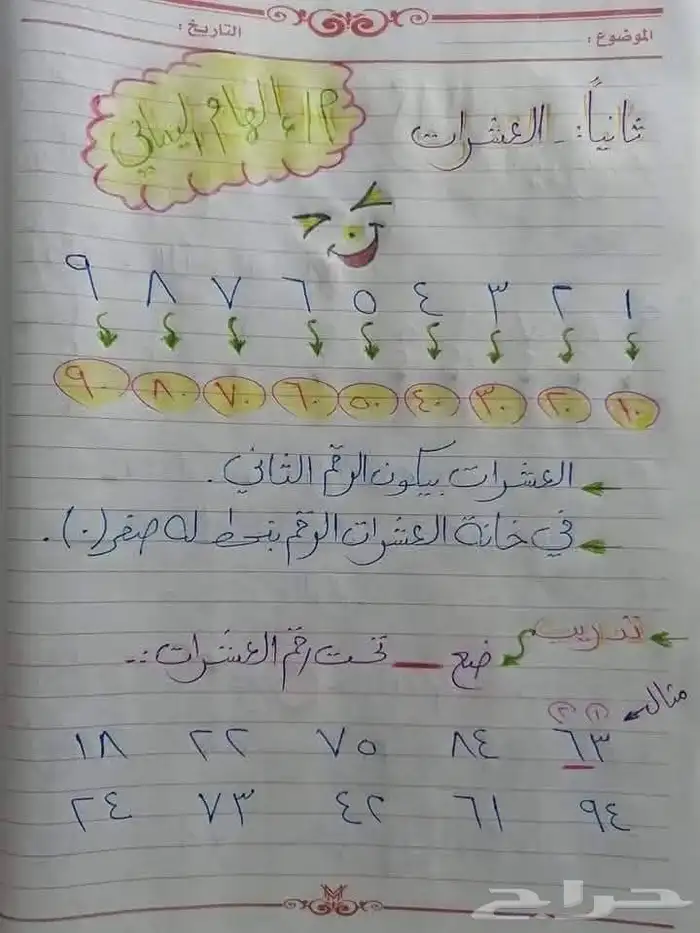 الموضوع : التاريخ :
ثانياً :- العشرات
م/ إلهام اليماني
١ ٢ ٣ ٤ ٥ ٦ ٧ ٨ ٩
١٠ ٢٠ ٣٠ ٤٠ ٥٠ ٦٠ ٧٠ ٨٠ ٩٠
العشرات بيكون الرقم الثاني .
في خانة العشرات الرقم بنحط له صفر (٠) .
تدريب
ضع __ تحت رقم العشرات :-
مثال
٢ ١
٦٣ ٨٤ ٧٥ ٢٢ ١٨
٩٤ ٦١ ٤٢ ٧٣ ٢٤
حراج